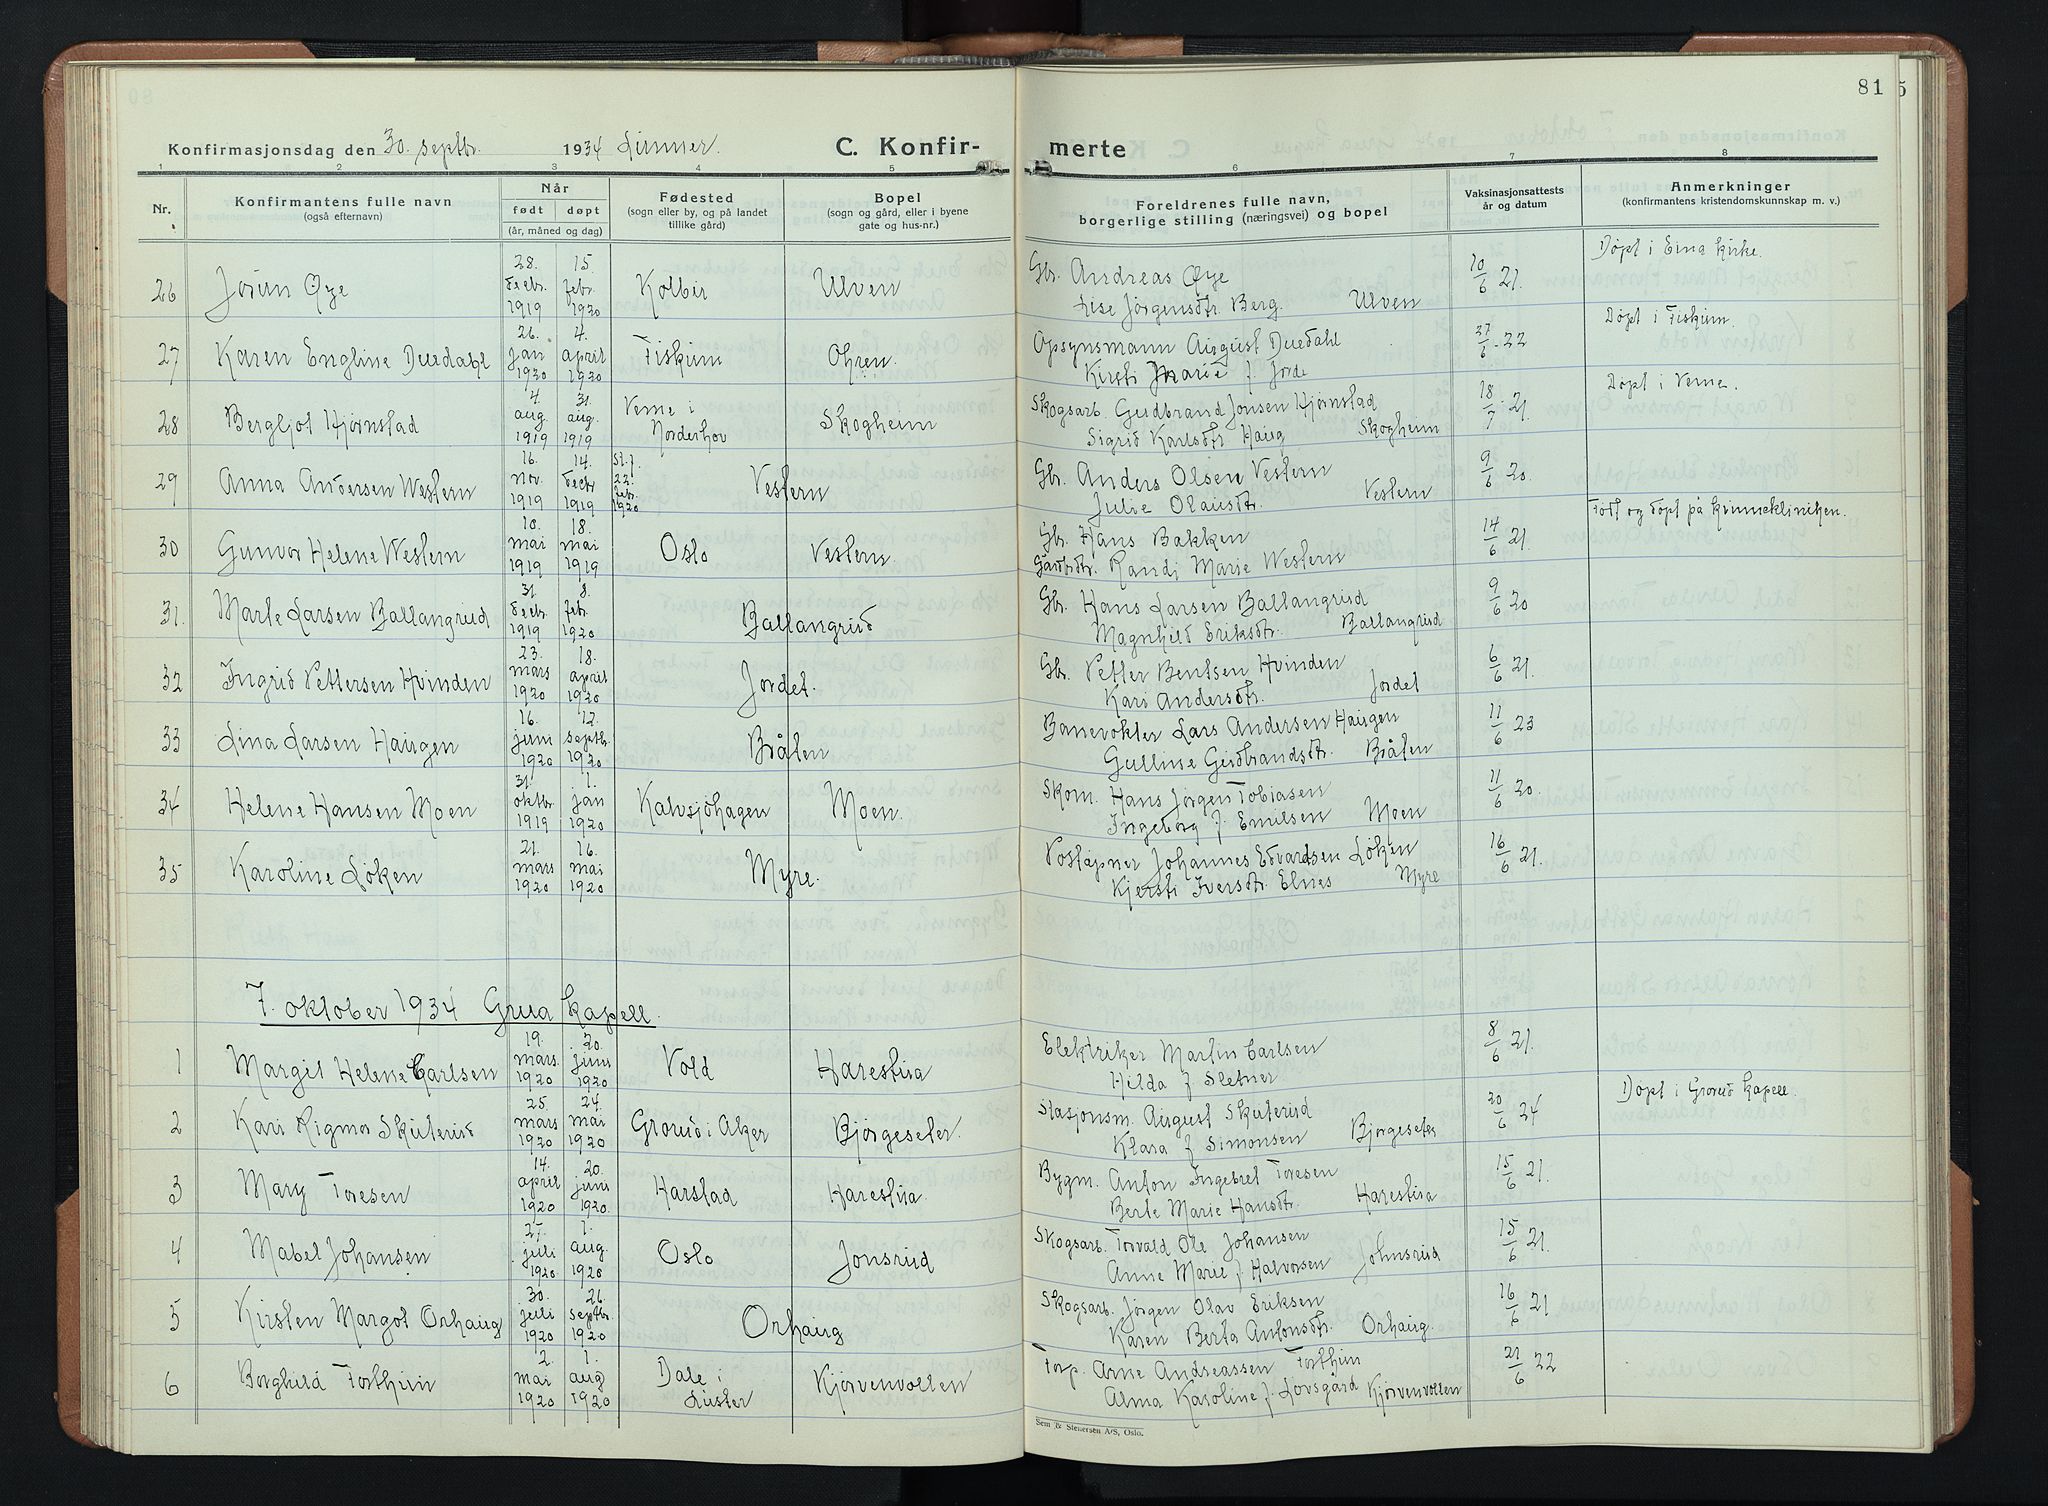 81 5
Konfirmasjonsdag den 30. septbr. 1934 Lunner. C. Konfir- merte
1 2 3 4 5 6 7 8
Nr. Konfirmantens fulle navn (også efternavn) Når født døpt (år, måned og dag) Fødested (sogn eller by, og på landet tillike gård) Bopel (sogn og gård, eller i byene gate og hus-nr.) Foreldrenes fulle navn, borgerlige stilling (næringsvei) og bopel Vaksinasjonsattests år og datum Anmerkninger (konfirmantens kristendomskunnskap m. v.)
26 Jorun Øye 28. decbr. 1919 15. febr. 1920 Kolbu Ulven Gbr. Andreas Øye 10/6 21. Døpt i Eina kirke.
Lise Jørgensdtr. Berg. Ulven
27 Karen Engline Duedahl 26. jan 1920 4. april 1920 Fiskum Ohren. Opsynsmann August Duedahl 27/6 22 Døpt i Fiskum.
Kirsti Marie f. Jorde
28 Bergljot Hjørnstad 4. aug. 1919 31. aug. 1919 Veme i Norderhov Skogheim Skogsarb. Gudbrand Jonsen Hjørnstad 18/7 21. Døpt i Veme.
Sigrid Karlsdtr. Haug Skogheim
29 Anna Andersen Western 16. nov. 1919 14. decbr 1919 St. f. 22. febr. 1920 Vestern Gbr. Anders Olsen Vestern 9/6 20.
Julie Olausdtr. Vestern
30 Gunvor Helene Western 10. mai 1919 18. mai 1919 Oslo Vestern. Gbr. Hans Bakken 14/6 21. Født og døpt på kvinneklinikken.
Gårdbdtr. Randi Marie Western
31. Marte Larsen Ballangrud 31. decbr. 1919 8. febr. 1920 Ballangrud Gbr. Hans Larsen Ballangrud 9/6 20
Magnhild Eriksdtr. Ballangrud
32 Ingrid Pettersen Hvinden 23. mars 1920 18. april 1920 Jordet. Gbr. Petter Bentsen Hvinden 6/6 21.
Kari Andersdtr. Jordet
33 Lina Larsen Haugen 16. juni 1920 12. septbr. 1920 Bråten Banevokter Lars Andersen Haugen 11/6 23
Gulline Gudbrandsdtr. Bråten
34 Helene Hansen Moen 31. oktbr. 1919 1. jan 1920 Kalvsjøhagen Moen. Skom. Hans Jørgen Tobiasen 11/6 20.
Ingeborg f. Emilsen Moen
35 Karoline Løken 21. mars 1920 16. mai 1920 Myre. Poståpner Johannes Edvardsen Løken 16/6 21.
Kjersti Iversdtr. Elnes Myre
7. oktober 1934 Grua kapell.
1 Margit Helene Carlsen 19. mars. 1920 20. juni 1920 Vold Harestua Elektriker Martin Carlsen 8/6 21.
Hilda f. Sletner
2 Kari Rigmor Skuterud 25. mars 1920 24. mai 1920 Grorud i Aker Bjørgeseter. Stasjonsm. August Skuterud 20/6 24 Døpt i Grorud kapell.
Klara f Simonsen Bjørgeseter
3 Mary Toresen 14. april 1920 20. juni 1920. Harstad Harestua. Bygm. Anton Ingebret Toresen 15/6 21.
Berte Marie Hansdtr. Harestua
4 Mabel Johansen 27. juli 1920 1. aug. 1920 Oslo Jonsrud Skogsarb. Torvald Ole Johansen 15/6 21.
Anne Marie f. Halvorsen Johnsrud
5 Kirsten Margot Orhaug 30. juli 1920 26. septbr. 1920 Orhaug Skogsarb. Jørgen Olav Eriksen 16/6 21
Karen Berta Antonsdtr. Orhaug.
6 Borghild Forthun 2. mai 1920 1. aug 1920 Dale i Luster Kjørvenvollen Forp. Arne Andreassen Forthun 21/6 22
Alma Karoline f. Lovsgård Kjørvenvollen
Sem & Stenersen A/S, Oslo.